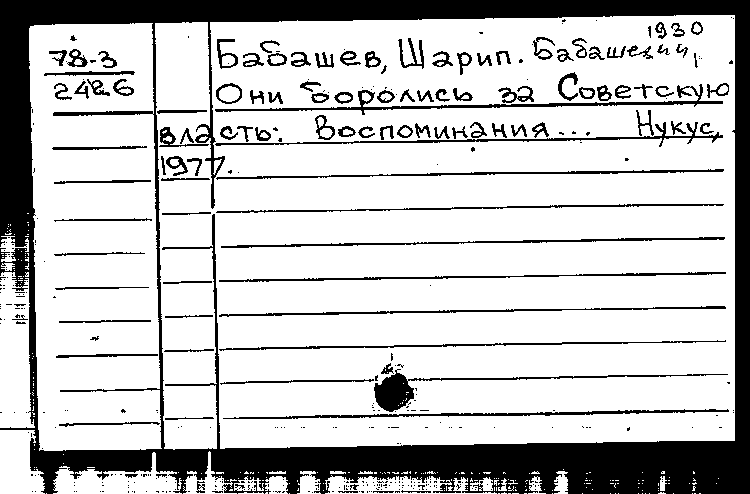 1930
78-3 Бабашев, Шарип.
2426 Они боролись за Советскую
власть: Воспоминания... Нукус,
1977.